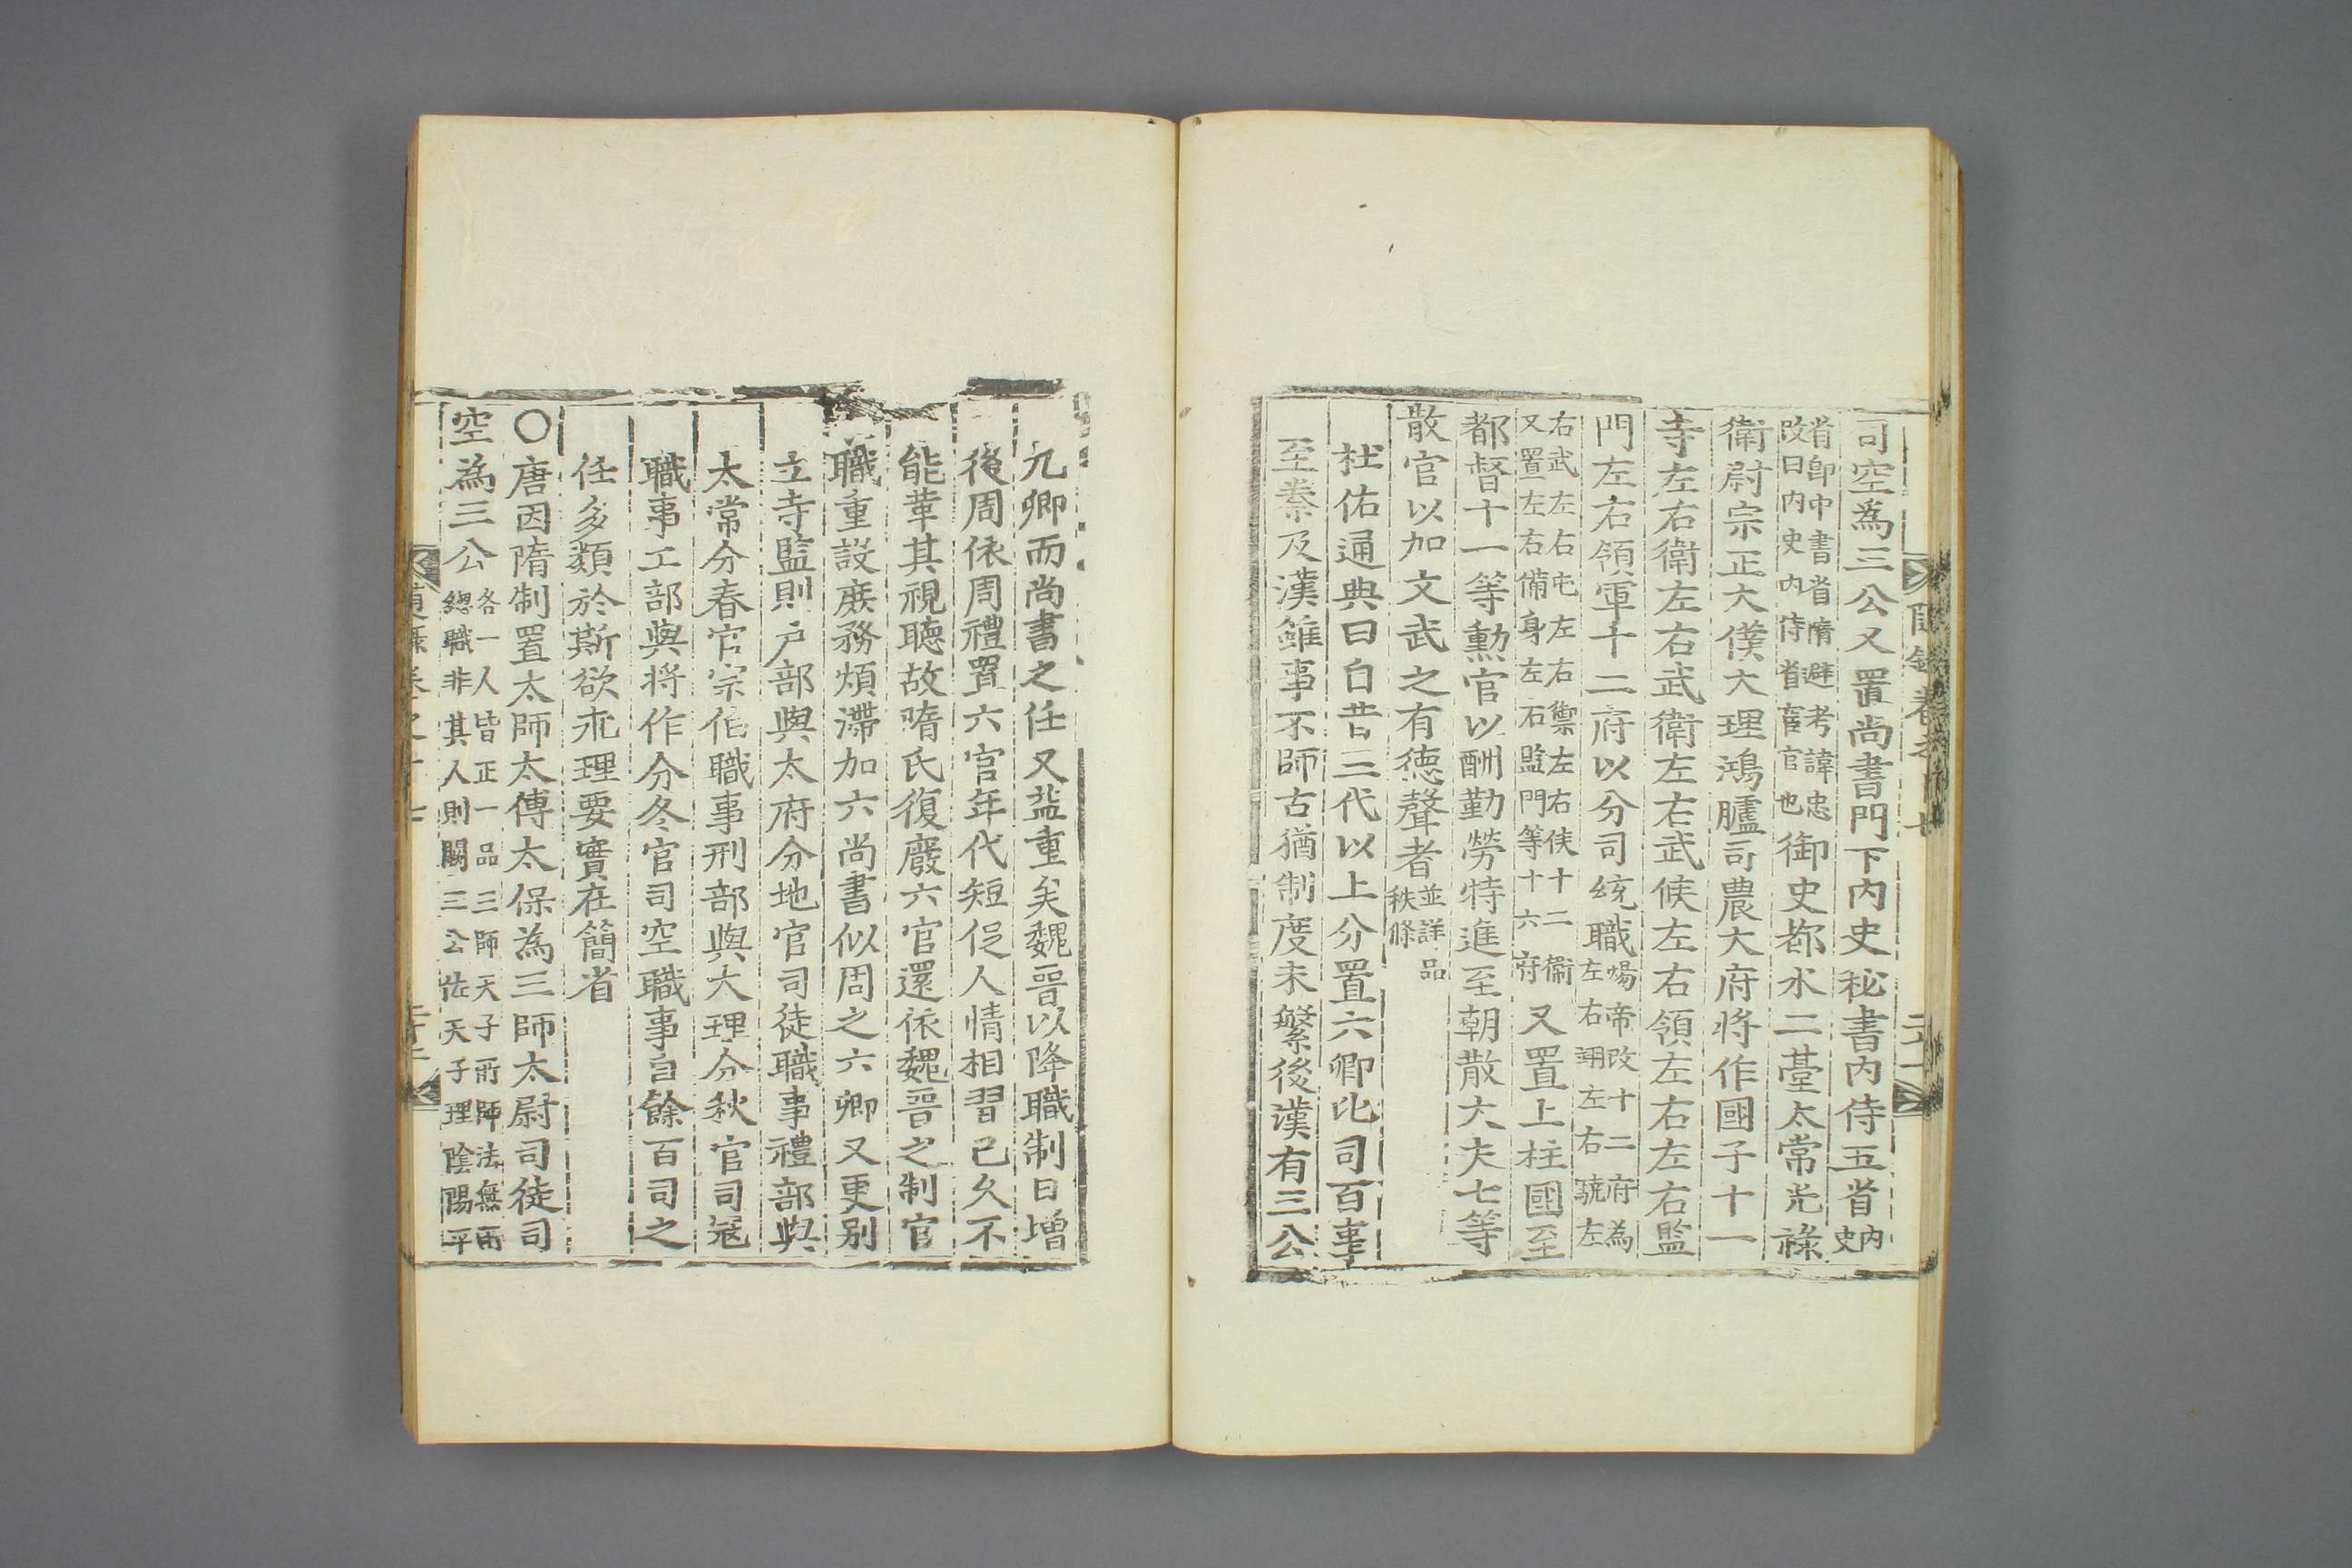 司空爲三公又置尚書門下內史秘書內侍五省內史
省卽中書省隋避考諱忠改曰內史內侍省宦官也御史都水二臺太常光祿
衛尉宗正大僕大理鴻臚司農大府將作國子十一
寺左右衛左右武衛左右武候左右領左右左右監
門左右領軍十二府以分司統職煬帝改十二府為左右翊左右驍左
右武左右屯左右禦左右候十二衞又置左右備身左右監門等十六府又置上柱國至
都督十一等勳官以酬勤勞特進至朝散大夫七等
散官以加文武之有德聲者並詳品秩條
杜佑通典曰自昔三代以上分置六卿比司百事
至秦及漢雖事不師古猶制度未繁後漢有三公
九卿而尚書之任又益重矣魏晉以降職制日增
後周依周禮置六官年代短促人情相習已久不
能革其視聽故隋氏復廢六官還依魏晉之制官
職重設庶務煩滯加六尚書似周之六卿又更別
立寺監則戶部與太府分地官司徒職事禮部與
太常分春官宗伯職事刑部與大理分秋官司寇
職事工部與將作分冬官司空職事自餘百司之
任多類於斯欲求理要實在簡省
○唐因隋制置太師太傅太保為三師太尉司徒司
空為三公各一人皆正一品三師天子所師法無所總職非其人則闕三公佐天子理陰陽平